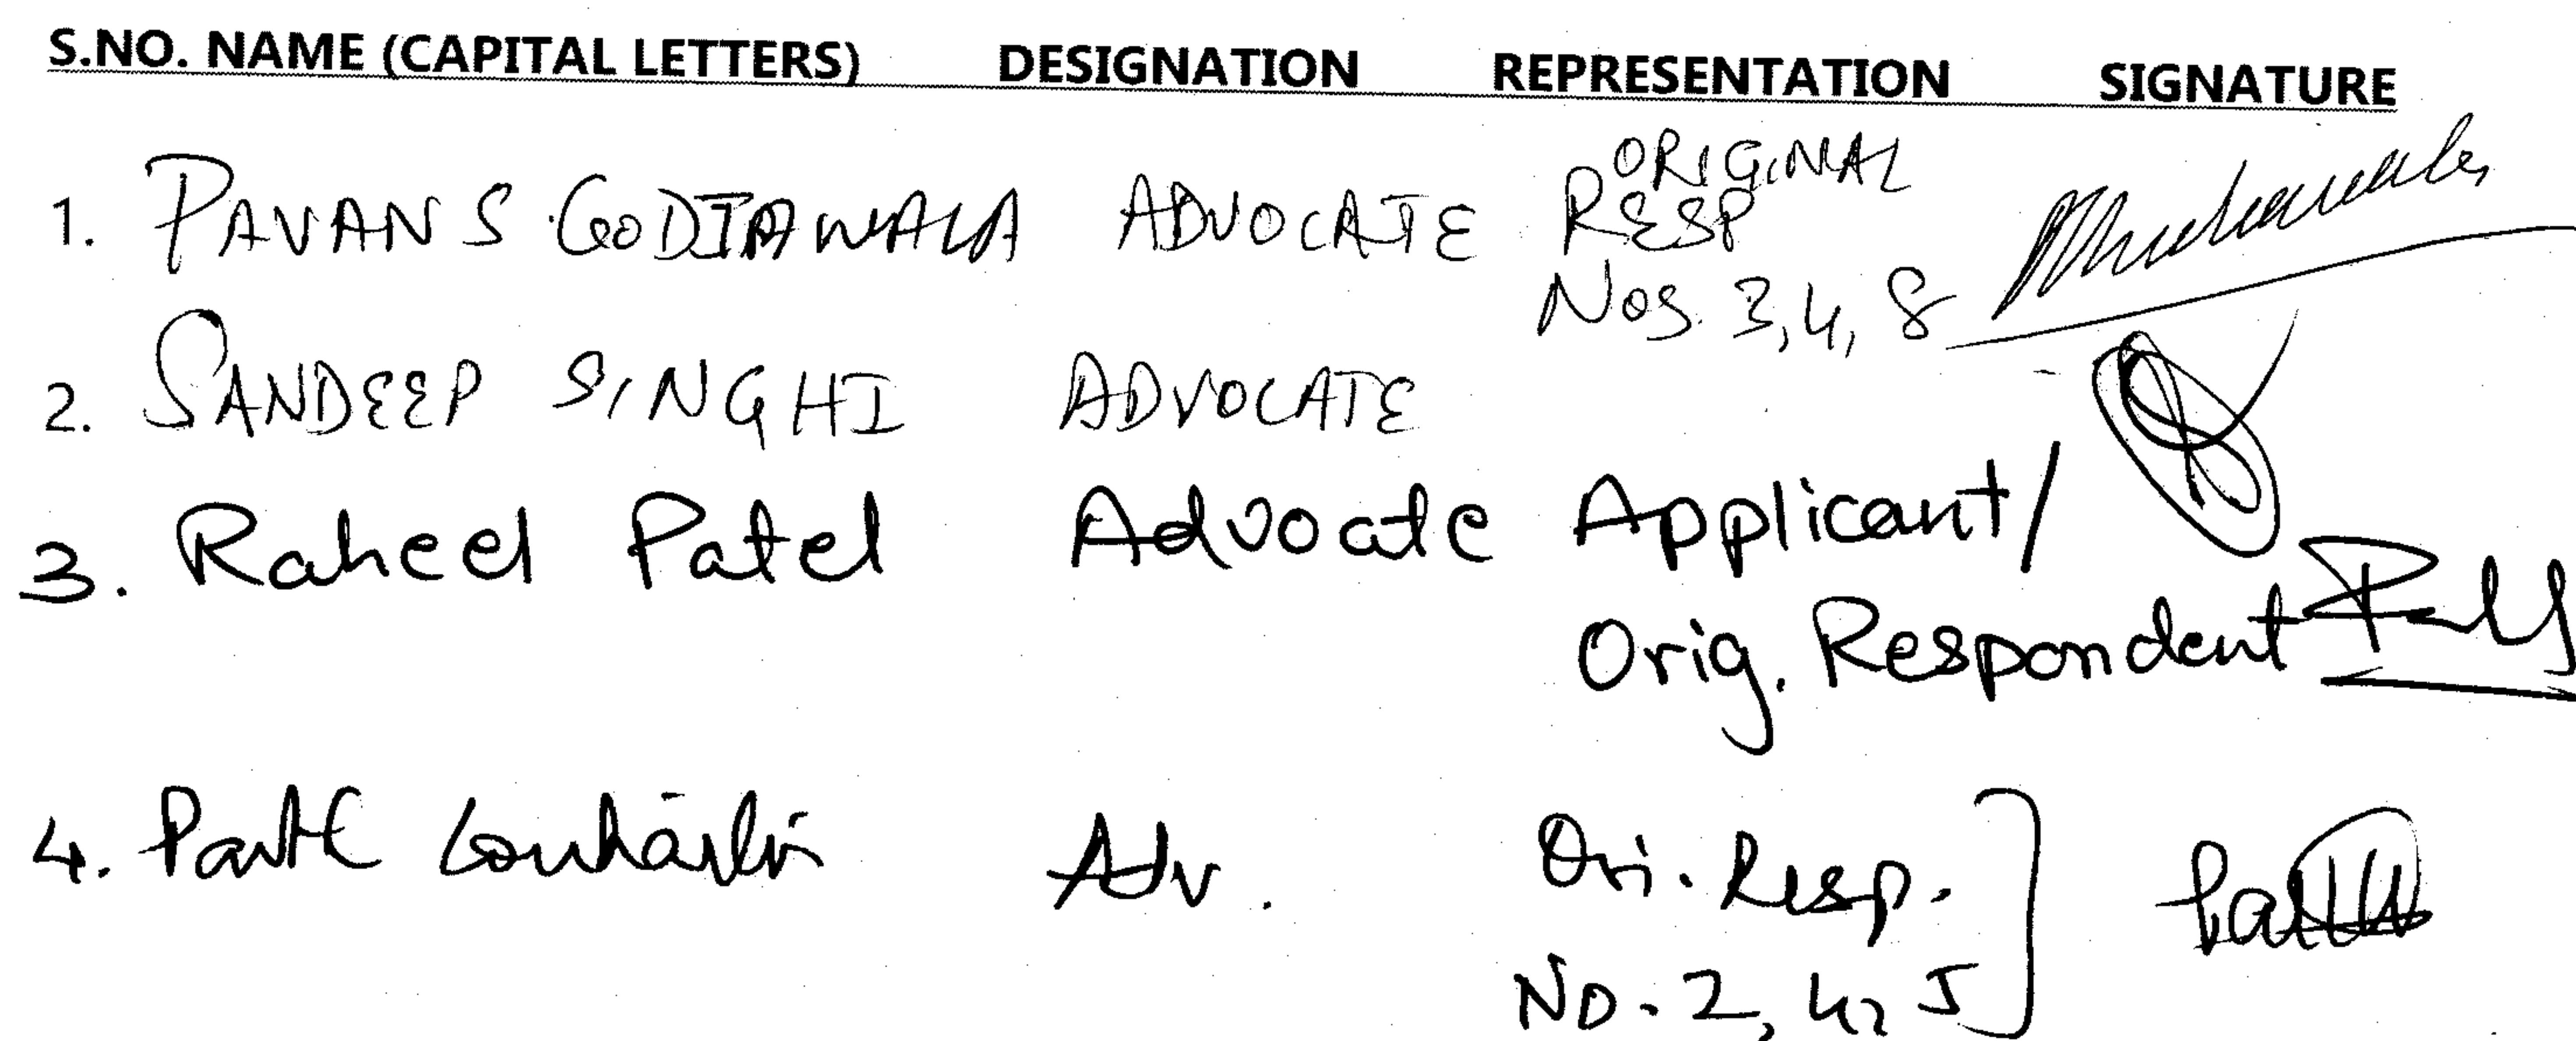 S.NO. NAME (CAPITAL LETTERS) DESIGNATION REPRESENTATION SIGNATURE
1. PAVAN S GODIAWALA ADVOCATE ORIGINAL RESP
Nos. 3, 4, 8
2. SANDEEP SINGHI ADVOCATE
3. Raheel Patel Advocate Applicant/
Orig. Respondent
4. Adv. Ori. Resp.
No. 2, 4, 5